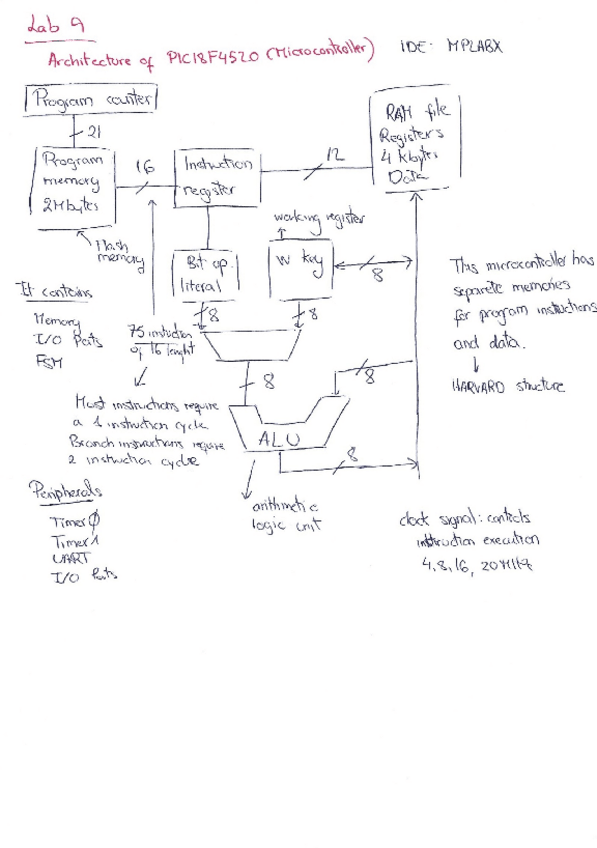 Lab 9
Architecture of PIC18F4520 (Microcontroller)
IDE: MPLABX
Program counter
21
Program
memory
2Mbytes
16
Instruction
register
12
RAM file
Registers
4 kbytes
Data
Flash
memory
working register
Bit op.
literal
W key
8
8
8
It contains
Memory
I/O Ports
FSM
75 instruction
of 16 lenght
This microcontroller has
separete memories
for program instructions
and data.
HARVARD structure
8
8
Most instructions require
a 1 instruction cycle
Branch instructions require
2 instruction cycle
ALU
8
arithmetic
logic unit
Peripherals
Timer 0
Timer 1
UART
I/O Ports
clock signal: controls
instruction execution
4, 8, 16, 20 MHz